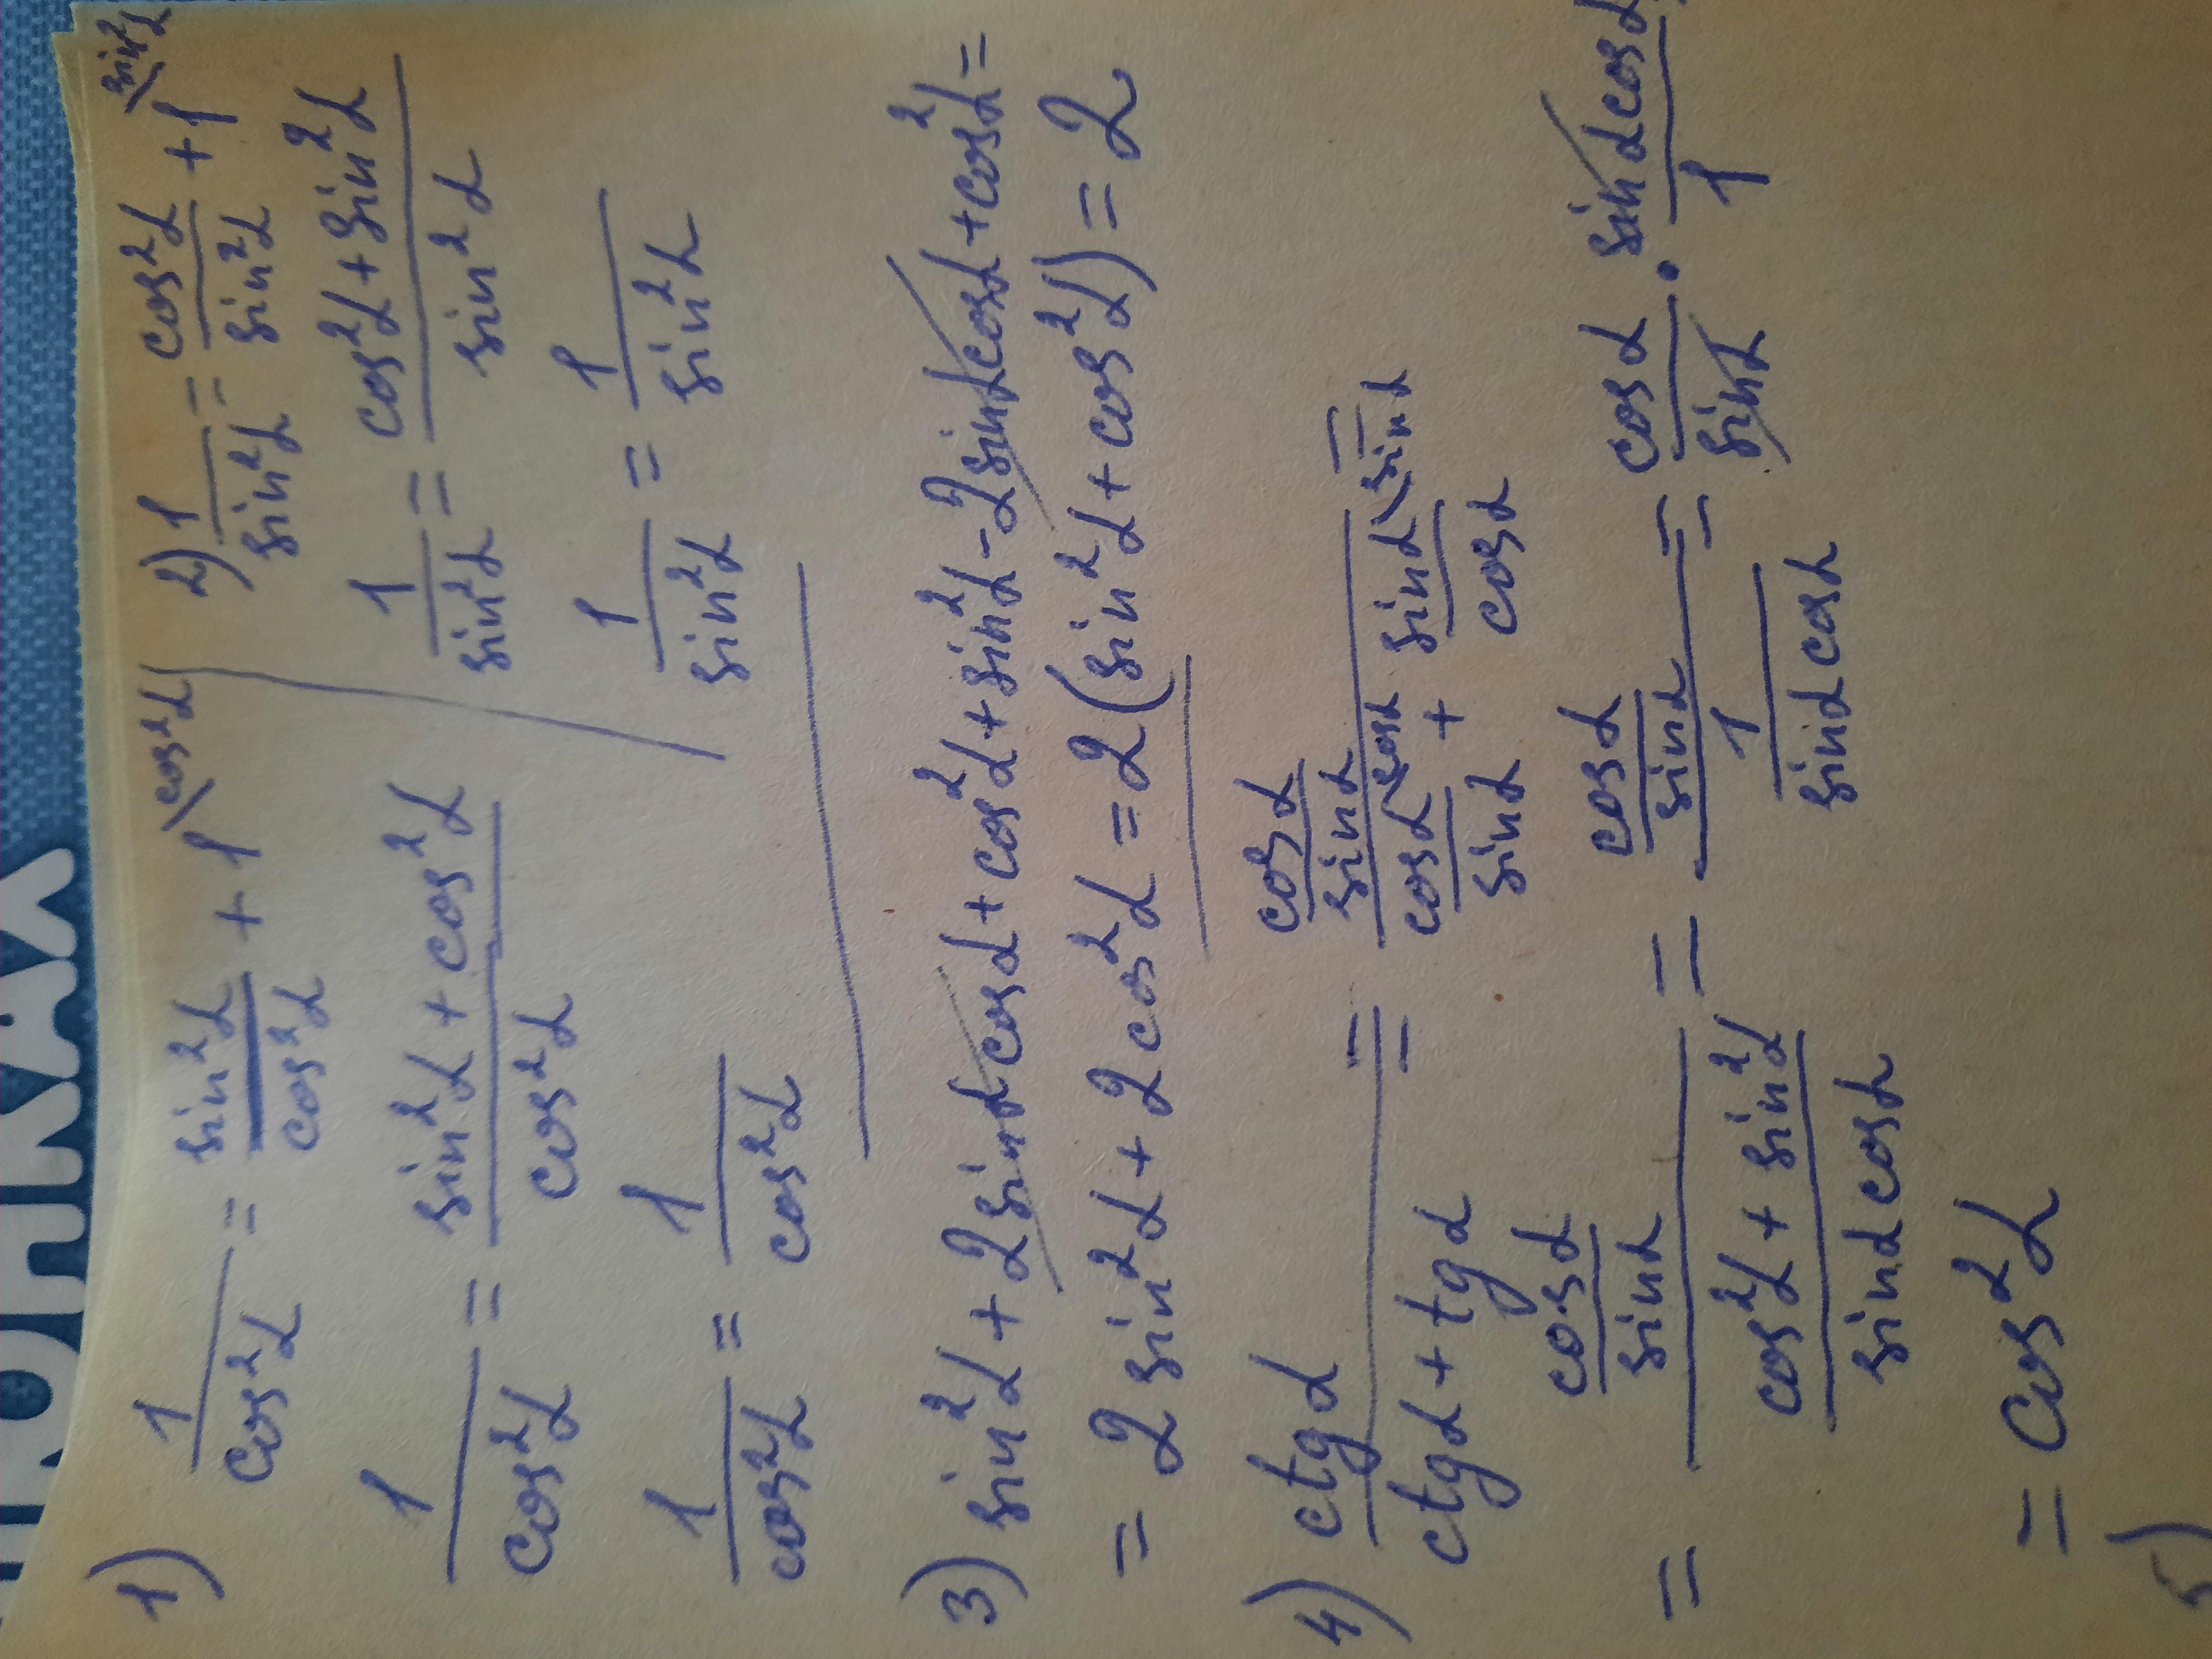 1) 1/cos²α = sin²α/cos²α + 1\cos²α
1/cos²α = (sin²α + cos²α)/cos²α
1/cos²α = 1/cos²α
2) 1/sin²α = cos²α/sin²α + 1\sin²α
1/sin²α = (cos²α + sin²α)/sin²α
1/sin²α = 1/sin²α
3) sin²α + 2sinαcosα + cos²α + sin²α - 2sinαcosα + cos²α =
= 2sin²α + 2cos²α = 2(sin²α + cos²α) = 2
4) ctgα/(ctgα + tgα) = (cosα/sinα)/(cosα\cosα/sinα + sinα\sinα/cosα) =
= (cosα/sinα)/((cos²α + sin²α)/(sinαcosα)) = (cosα/sinα)/(1/(sinαcosα)) = cosα/sinα · sinαcosα/1
= cos²α
5)